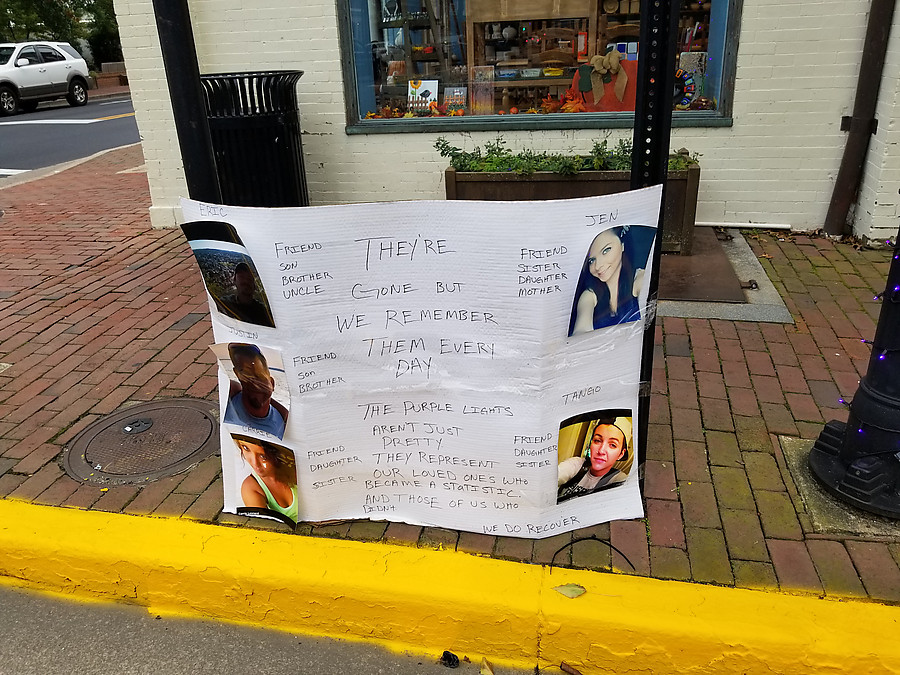 ERIC
FRIEND
SON
BROTHER
UNCLE
JUSTIN
FRIEND
SON
BROTHER
FRIEND
DAUGHTER
SISTER
THEY'RE
GONE BUT
WE REMEMBER
THEM EVERY
DAY
THE PURPLE LIGHTS
AREN'T JUST
PRETTY
THEY REPRESENT
OUR LOVED ONES WHO
BECAME A STATISTIC.
AND THOSE OF US WHO
DIDN'T
WE DO RECOVER
JEN
FRIEND
SISTER
DAUGHTER
MOTHER
TANGO
FRIEND
DAUGHTER
SISTER